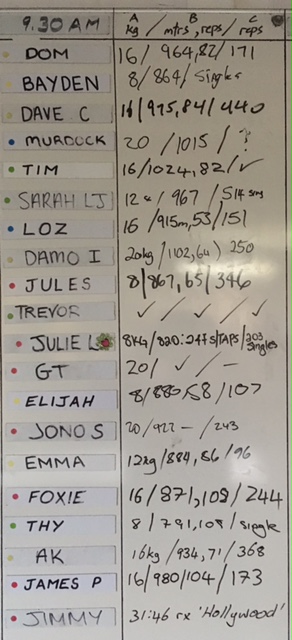 9.30 AM A kg / B mtrs, reps / C reps
DOM 16/ 964,82/171
BAYDEN 8/864/Singles
DAVE C 16/975,84/440
MURDOCK 20 /1015 / ?
TIM 16/1024,82/✓
SARAH LJ 12 / 967 / 514
LOZ 16 /915m,53/151
DAMO I 20kg/1102,64) 250
JULES 8/867,65/346
TREVOR ✓ / ✓ / ✓ / ✓
JULIE L 8KG/820:247 S/TAPS/203 singles
GT 20/ ✓ / —
ELIJAH 8/880,58/107
JONO S 20/922 — /243
EMMA 12kg/884,86/96
FOXIE 16/871,108/244
THY 8/791,108/single
AK 16kg/934,71/368
JAMES P 16/980/104/173
JIMMY 31:46 rx 'Hollywood'